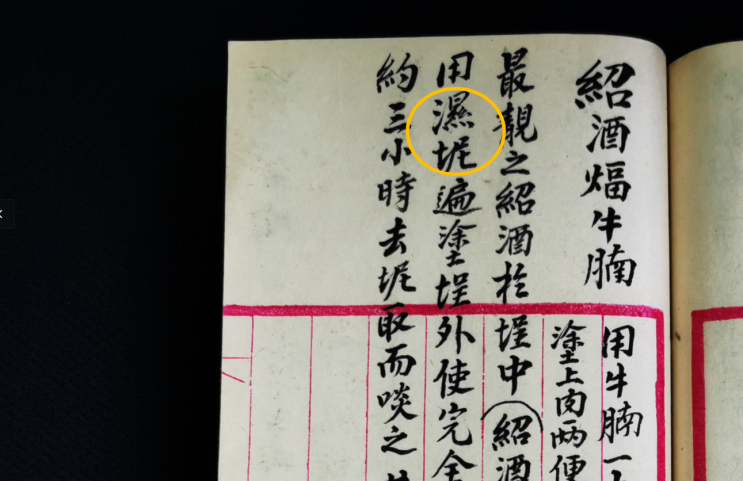 紹酒煏牛腩
用牛腩一
塗上肉兩便
最靚之紹酒於埕中(紹酒
用濕坭遍塗埕外使完全
約三小時去坭取而啖之